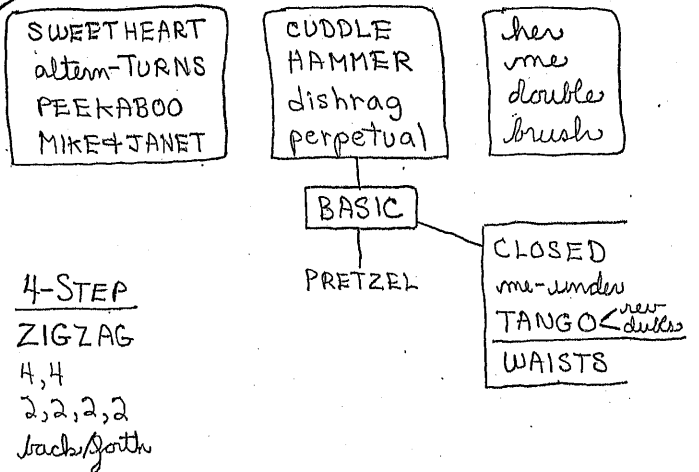 SWEETHEART
altern-TURNS
PEEKABOO
MIKE & JANET
CUDDLE
HAMMER
dishrag
perpetual
her
me
double
brush
BASIC
PRETZEL
CLOSED
me-under
TANGO < rev
WAISTS
4-STEP
ZIGZAG
4,4
2,2,2,2
back/forth